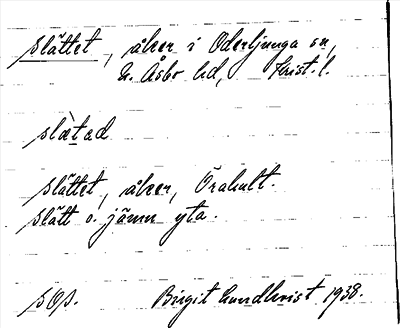 Slättet, åker i Oderljunga sn,
N. Åsbo hd, Krist. l.
slæ̀tad
Slättet, åker, Örahult.
Slätt o. jämn yta.
SOS. Birgit Lundkvist 1938.